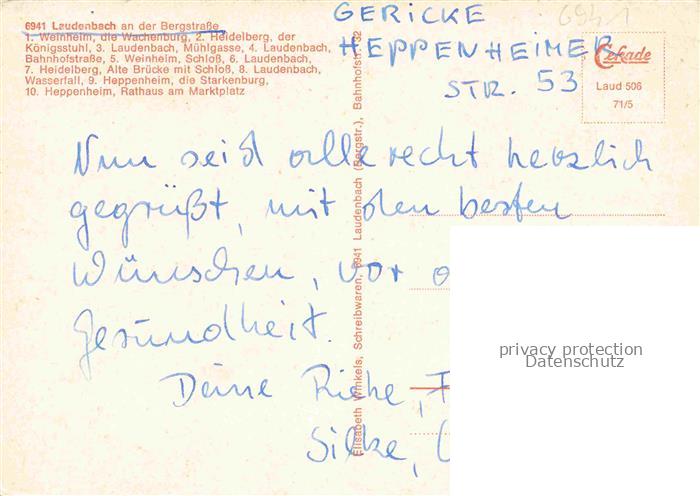 6941 Laudenbach an der Bergstraße
1. Weinheim, die Wachenburg, 2. Heidelberg, der
Königsstuhl, 3. Laudenbach, Mühlgasse, 4. Laudenbach,
Bahnhofstraße, 5. Weinheim, Schloß, 6. Laudenbach,
7. Heidelberg, Alte Brücke mit Schloß, 8. Laudenbach,
Wasserfall, 9. Heppenheim, die Starkenburg,
10. Heppenheim, Rathaus am Marktplatz
GERICKE
HEPPENHEIMER
STR. 53
6941
Cekade
Laud 506
71/5
Elisabeth Winkels, Schreibwaren, 6941 Laudenbach (Bergstr.), Bahnhofstr. 32
Nun seid alle recht herzlich
gegrüßt, mit den besten
Wünschen, vor
Gesundheit.
Deine
Silke,
privacy protection
Datenschutz